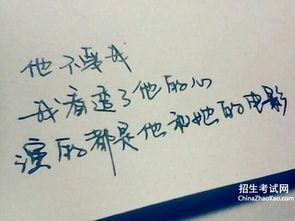 他不爱我
我看遍了他的心
演的都是他和她的电影
招生考试网
ChinaZhaoKao.com